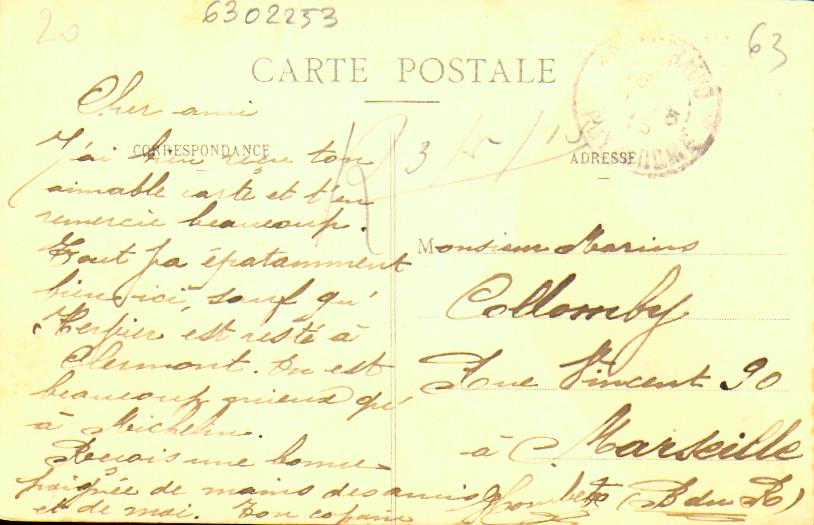 20
6302253
63
CARTE POSTALE
CORRESPONDANCE
ADRESSE
PUY-DE-DOME
R 3/5/15
Cher ami
J'ai bien reçu ton
aimable carte et t'en
remercie beaucoup.
Tout va épatamment
bien ici, sauf qu'
est resté à
Clermont. On est
beaucoup mieux qu'
à Michelin.
Reçois une bonne
poignée de mains des amis
et de moi. Ton copain
Monsieur Marius
Collomby
Rue Vincent 90
à Marseille
(B du R)